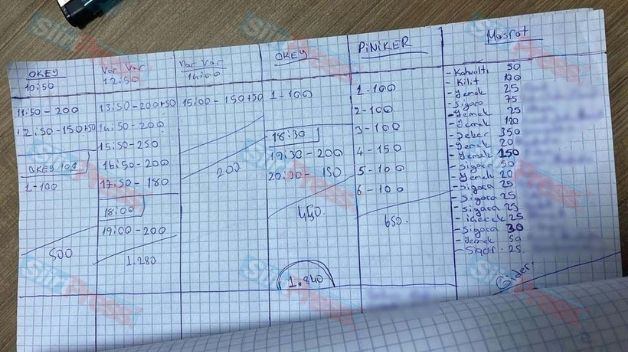 OKEY
10:50
11:50-200
12:50-150+50
OKEY 101
1-100
500
Var Var
12:50
13:50-200+50
14:50-200
15:50-250
16:50-200
17:50-180
18:00
19:00-200
1.280
Var Var
14:00
15:00-150+50
200
OKEY
1-100
18:30
19:30-200
20:30-150
450
1.840
PİNİKER
1-100
2-100
3-100
4-150
5-100
6-100
650
Masraf
-Kahvaltı 50
-Kilit
-Yemek 25
-Sigara 75
-Yemek 25
-Yemek 120
-Şeker 350
-Yemek 20
-Yemek 150
-Sigara 50
-Yemek 20
-Sigara 25
-Sigara 25
-Sigara 25
-içecek 25
-Sigara 30
-Yemek 50
-Sigar-25
Gider:
SiirtPress